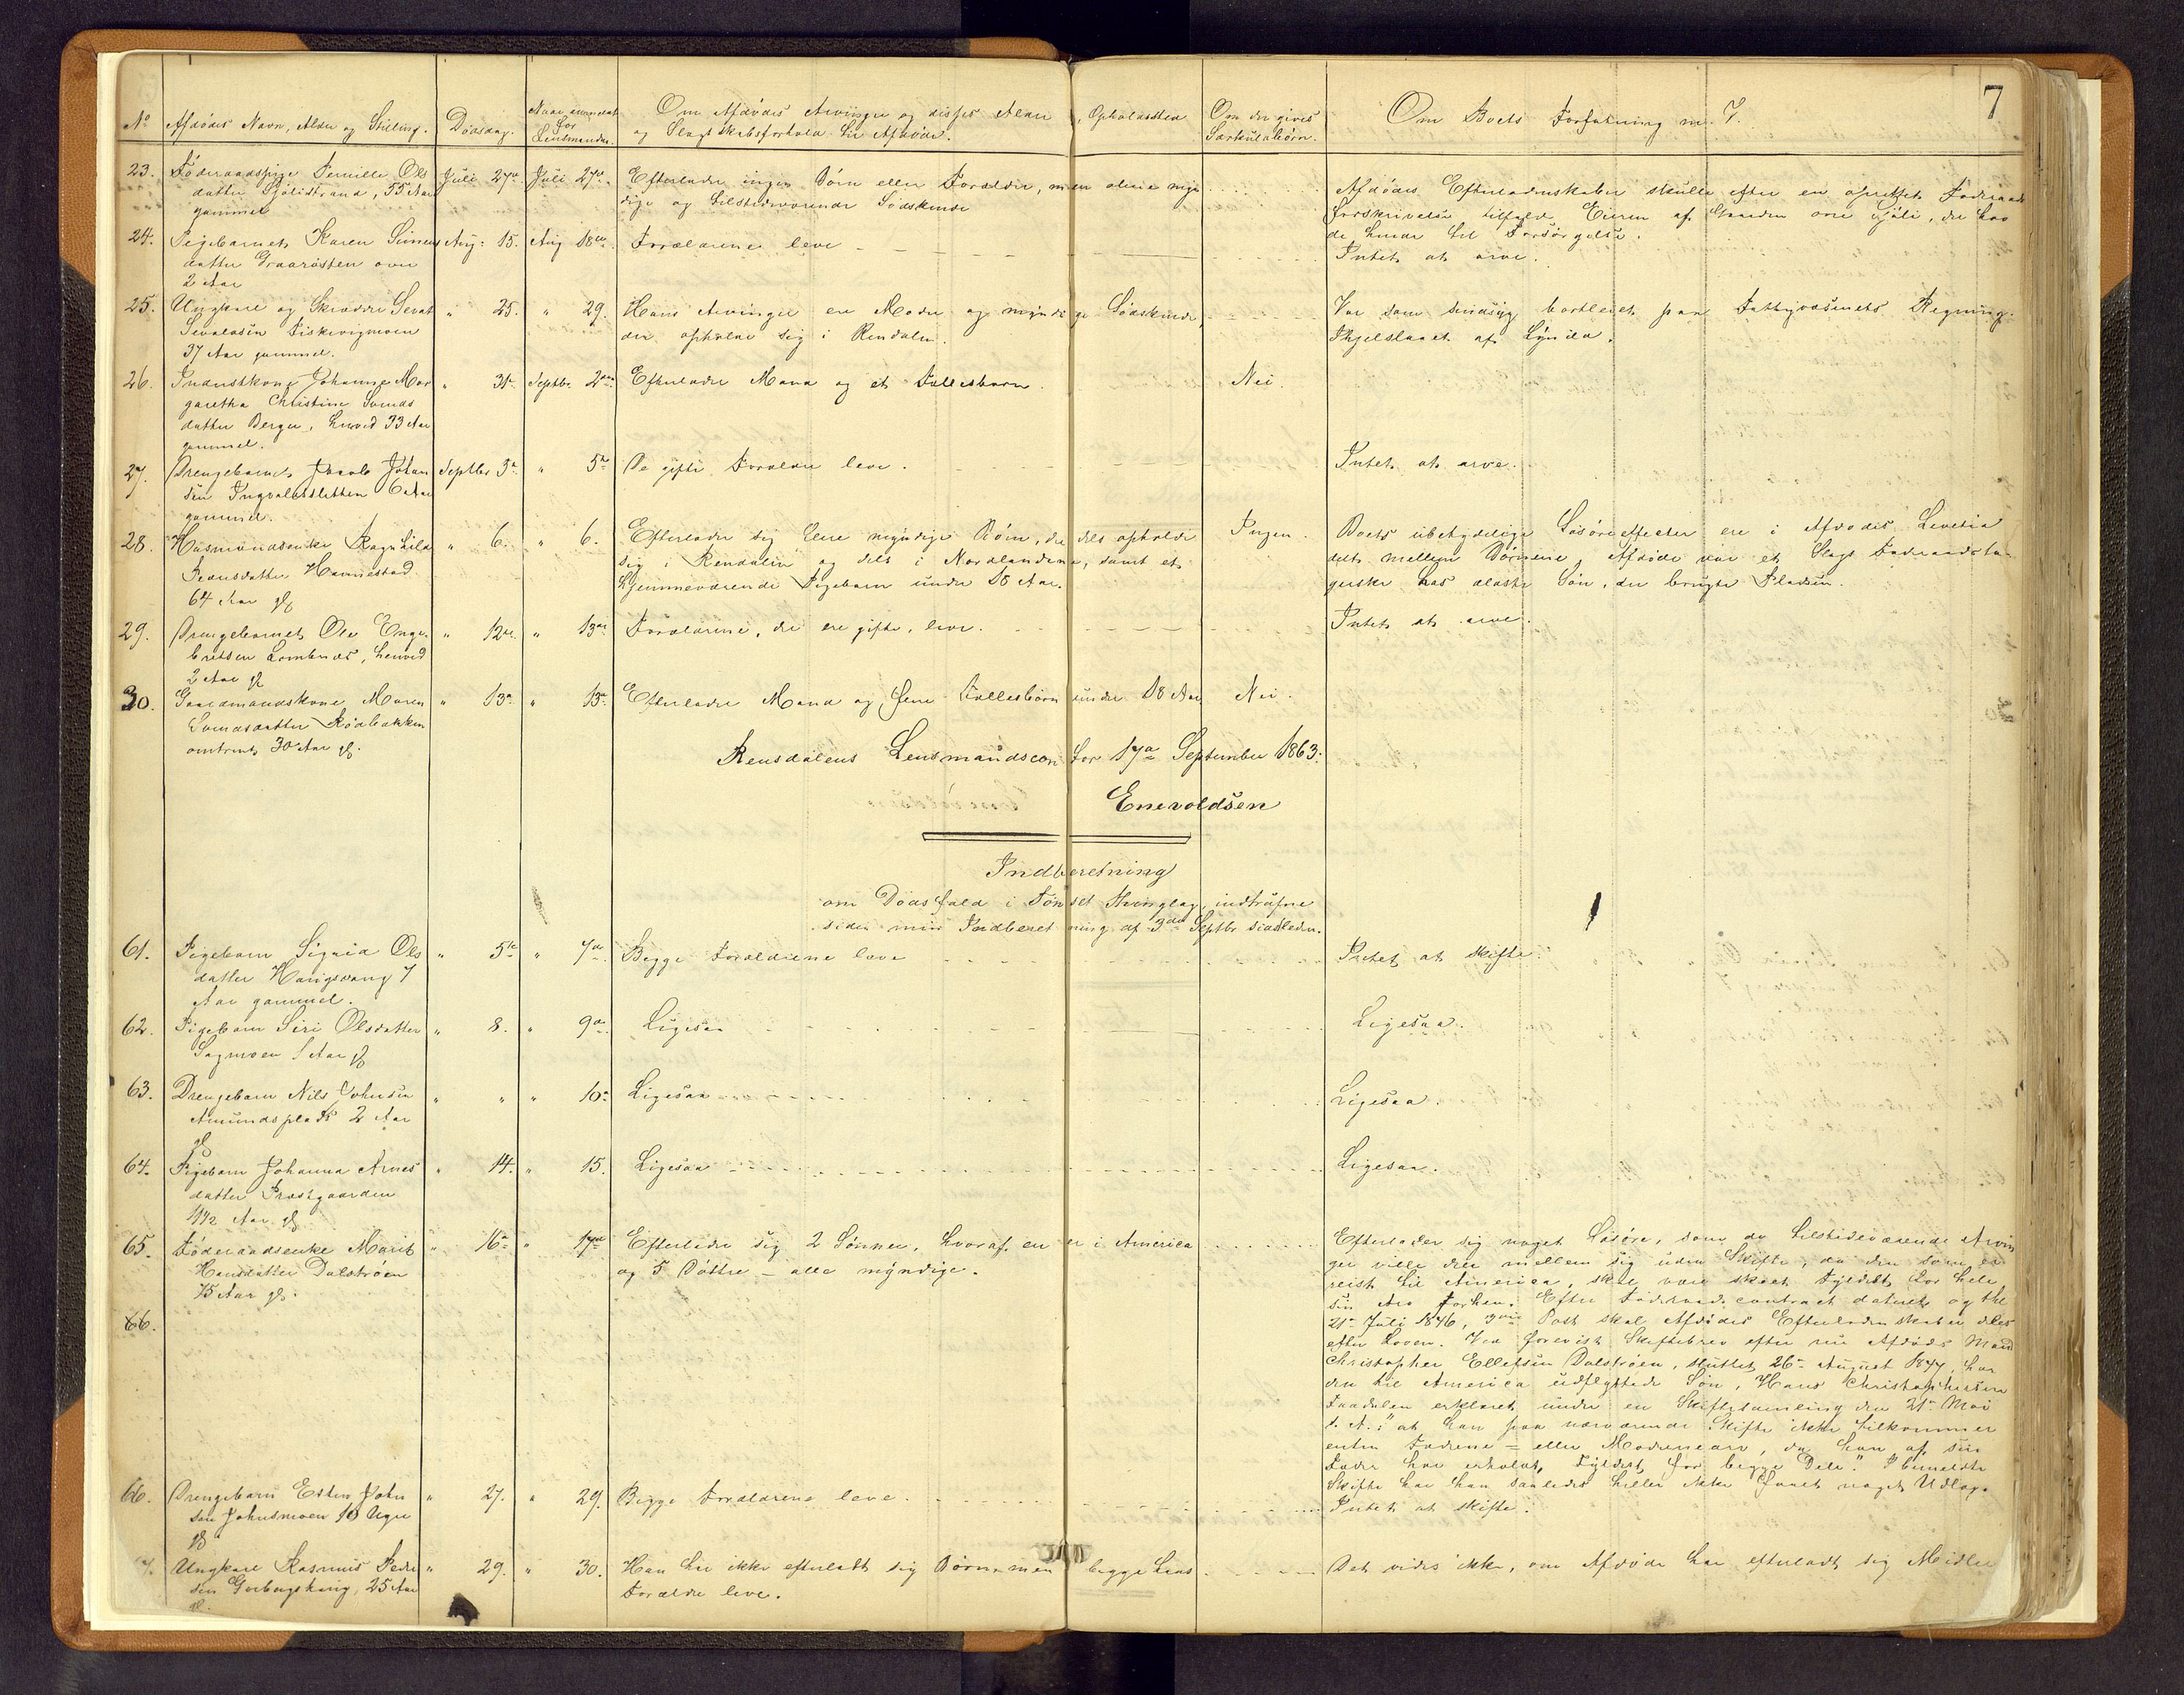 7
No
Afdødes Navn, Alder og Stilling.
Dødsdag.
Naar anmeldt
for
Lensmanden.
Om Afdødes Arvinger og disses Alder, Opholdssted
og Slægtskabsforhold til Afdøde.
Om der gives
Særkuldbørn.
Om Boets Forfatning m. V.
23.
Føderaadspige Pernille Ols
datter Sjølistrand, 55 Aar
gammel
Juli 27de
Juli 27de
Efterlader ingen Børn eller Forældre, men alene myn
dige og tilstedeværende Sødskende
Afdødes Efterladenskaber skulle efter en oprettet Føderaads
forskrivelse tilfalde Eieren af Gaarden øvre Sjøli, der hav
de hende til Forsørgelse.
24.
Pigebarnet Karen Simens
datter Graaråsten over
2 Aar
Aug: 15.
Aug 18de
Forældrene leve
Intet at arve.
25.
Ungkarl og Skrædder Sevat
Sevatsen Fiskevigmoen
37 Aar gammel.
" 25.
" 29.
Hans Arvinger ere Moder og myndige Sødskende,
der opholde sig i Rendalen.
Var som sindssyg bortleiet paa Fattigvæsenets Regning.
Ihjelslaaet af Lynild.
26.
Inderstkone Johanne Mar
garetha Christine Svends
datter Berger, henved 33 Aar
gammel.
" 31te
Septbr. 2den
Efterlader Mand og et Fællesbarn.
Nei.
27.
Drengebarnet Jacob Johan
sen Ingvaldsletten 6 Aar
gammel.
Septbr 3die
" 5te
De gifte Forældre leve.
Intet at arve.
28.
Husmandsenke Ragnhild
Pedersdatter Hannestad
64 Aar gl.
" 6.
" 6.
Efterlader sig flere myndige Børn, der dels opholde
sig i Rendalen og dels i Nordlandene, samt et
hjemmeværende Pigebarn under 18 Aar.
Ingen.
Boets ubetydelige Løsøreeffecter ere i Afdødes Levetid
delt mellem Børnene. Afdøde var et Slags Føderaadsta-
gerske hos ældste Søn, der brugte Pladsen.
29.
Drengebarnet Ole Enge-
bretsen Lombnæs, henved
2 Aar gl
" 12te
" 13de
Forældrene, der ere gifte, leve.
Intet at arve.
30.
Gaardmandskone Maren
Svendsdatter Rødbakken
omtrent 30 Aar gl.
" 13de
" 13de
Efterlader Mand og flere Fællesbørn under 18 Aar
Nei.
Rensdalens Lensmandscontor 17de September 1863.
Enevoldsen
Indberetning
om Dødsfald i Tønset Thinglag, indtrufne
siden min Indberetning af 3die Septbr sidstleden.
61.
Pigebarn Sigrid Ols
datter Haugsvang 7
Aar gammel.
" 5te
" 7de
Begge Forældrene leve
Intet at skifte.
62.
Pigebarn Siri Olsdatter
Sagmoen 1 Aar gl
" 8.
" 9de
Ligesaa
Ligesaa.
63.
Drengebarn Nils Johnsen
Amundsplads 2 Aar
gl
" "
" 10de
Ligesaa
Ligesaa.
64.
Pigebarn Johanna Arnes
datter Præstgaarden
1 1/2 Aar gl
" 14.
" 15.
Ligesaa
Ligesaa.
65.
Føderaadsenke Marit
Hansdatter Dalstrøen
75 Aar gl.
" 16de
" 17de
Efterlader sig 2 Sønner, hvoraf en er i America
og 5 Døttre – alle myndige.
Efterlader sig noget Løsøre, som de tilstedeværende Arvin
ger ville dele mellem sig uden Skifte, da den Søn, er
reist til America, skal være skeet Fyldest for hele
sin Arv forhen. Efter Føderaadscontract dateret og thl
21de Juli 1846, Post skal Afdødes Efterladenskaber deles
efter Loven. Ved forevist Skiftebrev efter nu Afdødes Mand
Christopher Ellefsen Dalstrøen, sluttet 26de August 1847, har
den til America udflyttede Søn, Hans Christophersen
Faadalen erklæret under en Skiftesamling den 21de Mai
s. A.: "at han paa nærværende Skifte ikke tilkommer
enten Fædrene- eller Mødrenearv, da han af sin
Fader har erholdt Fyldest for begge Dele." I bemeldte
Skifte har han saaledes heller ikke faaet noget Udlæg.
66.
66.
Drengebarn Esten John
sen Johnsmoen 18 Uger
gl
" 27.
" 29.
Begge Forældrene leve.
Intet at skifte.
Ungkarl Rasmus Peder
sen Gorbergshaug, 25 Aar
gl.
" 29.
" 30.
Han har ikke efterladt sig Børn, men begge hans
Forældre leve.
Det vides ikke, om Afdøde har efterladt sig Midler